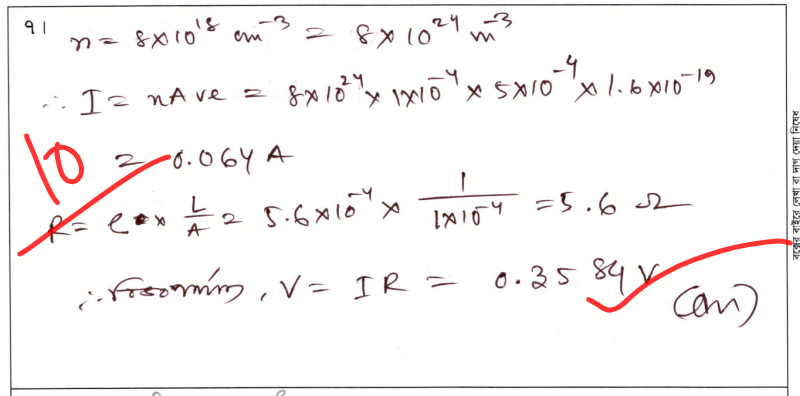 ৭১
n = 8×10^18 cm^-3 = 8×10^24 m^-3
∴ I = nAve = 8×10^24 × 1×10^-4 × 5×10^-4 × 1.6×10^-19
= 0.064 A
10
R = ρ × L/A = 5.6×10^-4 × 1/1×10^-4 = 5.6 Ω
∴ , V = IR = 0.3584 V
(Ans)
বক্সের বাইরে লেখা বা দাগ দেয়া নিষেধ